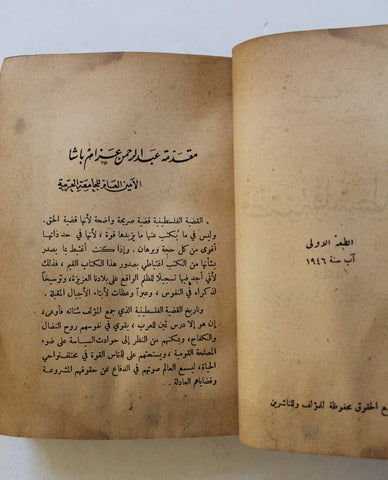 الطبعة الاولى
آب سنة ١٩٤٦
ع الحقوق محفوظة للمؤلف وللناشرين
مقدمة عبد الرحمن عزام باشا
الأمين العام للجامعة العربية
القضية الفلسطينية قضية صريحة واضحة لأنها قضية الحق.
وليس في ما يُكتب عنها ما يزيدها قوة، لأنها في حد ذاتها
أقوى من كل حجة وبرهان. وإذا كنت أغتبط بما يصدر
بشأنها من الكتب اغتباطي بصدور هذا الكتاب القيم، فذلك
لأني أجد فيها تسجيلاً للظلم الواقع على بلادنا العزيزة، وترسيخاً
لذكراه في النفوس، وعبراً وعظات لأبناء الأجيال المقبلة.
وتاريخ القضية الفلسطينية الذي جمع المؤلف شتاته فأوعى،
إن هو إلا درس ثمين للعرب، يقوي في نفوسهم روح النضال
والكفاح، ويمكنهم من النظر إلى حوادث السياسة على ضوء
المصلحة القومية، ويستحثهم على التماس القوة في مختلف نواحي
الحياة، ليسمع العالم صوتهم في الدفاع عن حقوقهم المشروعة
وقضاياهم العادلة.
ز